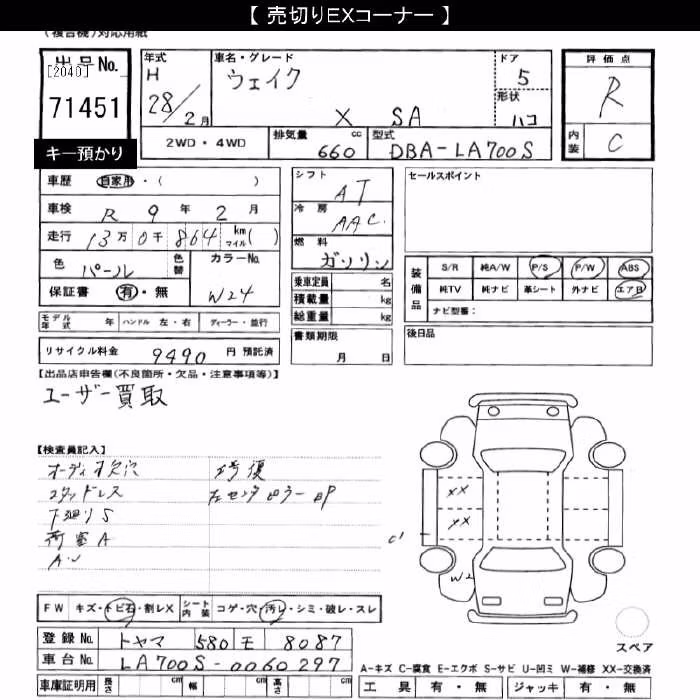 【 売切りEXコーナー 】
(複合機)対応用紙
出品No.
[2040]
71451
キー預かり
年式
H
28/2月
車名・グレード
ウェイク
X SA
ドア
5
形状
ハコ
2WD・4WD
排気量 cc
660
型式
DBA-LA700S
評価点
R
内装
C
車歴 自家用・( )
車検 R 9 年 2 月
走行 13万 0千 864 km マイル( )
色 パール 色替 カラーNo. W24
保証書 有・無
モデル年式 年 ハンドル 左・右 ディーラー・並行
リサイクル料金 9490 円 預託済
シフト AT
冷房 AAC
燃料 ガソリン
乗車定員 名
積載量 kg
総重量 kg
書類期限
月 日
セールスポイント
装備品
S/R 純A/W P/S P/W ABS
純TV 純ナビ 革シート 外ナビ エアB
ナビ型番：
後日品
【出品店申告欄(不良箇所・欠品・注意事項等)】
ユーザー買取
【検査員記入】
スタッドレス
下廻りS
荷室A
修復
左センタピラーP
XX
XX
C1
W2
FW キズ・トビ石・割レX シート内装 コゲ・穴・汚レ・シミ・破レ・スレ
登録No. トヤマ 580 モ 8087
車台No. LA700S-0060297
車庫証明用 長さ cm 幅 cm 高さ cm
スペア
A-キズ C-腐食 E-エクボ S-サビ U-凹ミ W-補修 XX-交換済
工具 有・無 ジャッキ 有・無